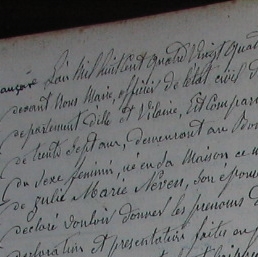 L'an Mil huit cent quatre vingt quat
devant Nous Maire, officier de l'état civil d
département d'Ille et Vilaine, Est Compar
de trente sept ans, demeurant au
du sexe féminin, né en sa Maison ce
de Julie Marie Neveu, son épou
déclaré vouloir donner les prénoms d
déclaration et présentation faites en